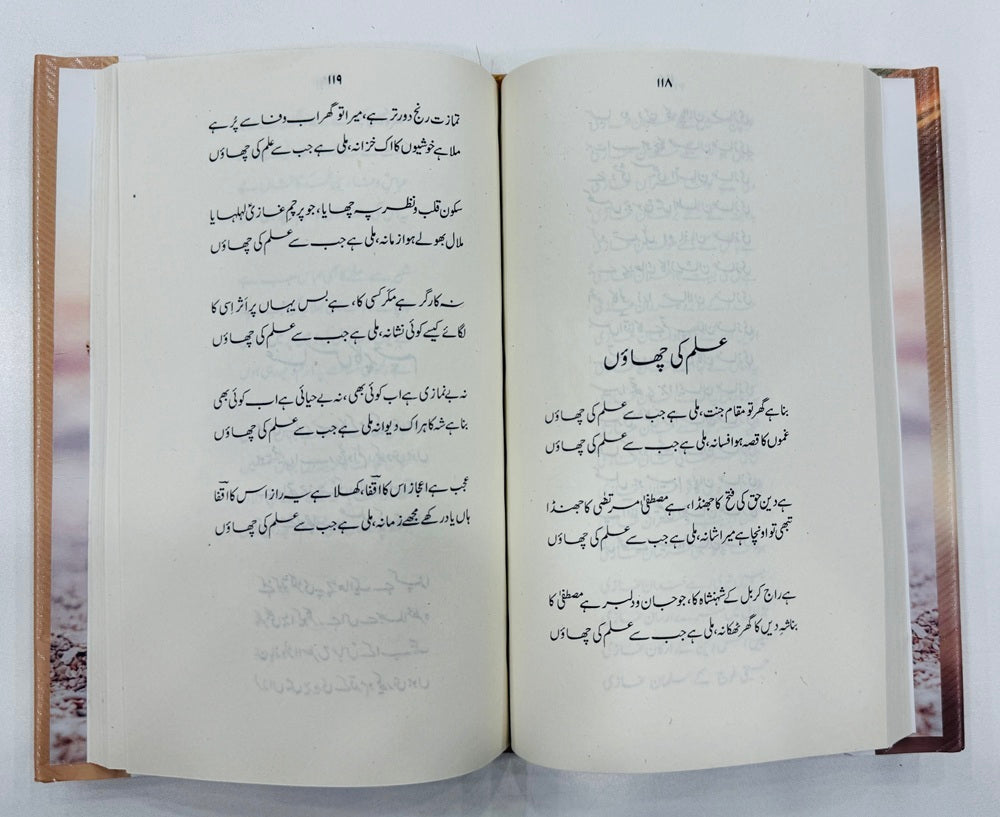 ۱۱۸
علم کی چھاؤں
بنا ہے گھر تو مقام جنت، ملی ہے جب سے علم کی چھاؤں
غموں کا قصہ ہوا فسانہ، ملی ہے جب سے علم کی چھاؤں
ہے دین حق کی فتح کا جھنڈا، ہے مصطفیٰ مرتضیٰ کا جھنڈا
تبھی تو اونچا ہے میرا شانہ، ملی ہے جب سے علم کی چھاؤں
ہے راج کربل کے شہنشاہ کا، جو جان و دلبر ہے مصطفیٰ کا
بنا شہِ دیں کا گھر ٹھکانہ، ملی ہے جب سے علم کی چھاؤں
۱۱۹
تمازت رنج دور تر ہے، میرا تو گھر اب وفا سے پُر ہے
ملا ہے خوشیوں کا اک خزانہ، ملی ہے جب سے علم کی چھاؤں
سکون قلب و نظر پہ چھایا، جو پرچمِ غازیؑ لہلہایا
ملال بھولے ہوا زمانہ، ملی ہے جب سے علم کی چھاؤں
نہ کارگر ہے مکر کسی کا، ہے بس یہاں پر اثر اِسی کا
لگائے کیسے کوئی نشانہ، ملی ہے جب سے علم کی چھاؤں
نہ بے نمازی ہے اب کوئی بھی، نہ بے حیائی ہے اب کوئی بھی
بنا ہے شہ کا ہر اک دیوانہ ملی ہے جب سے علم کی چھاؤں
عجب ہے اعجاز اس کا اقفا، کھلا ہے یہ راز اس کا اقفا
ہاں یاد رکھے مجھے زمانہ، ملی ہے جب سے علم کی چھاؤں